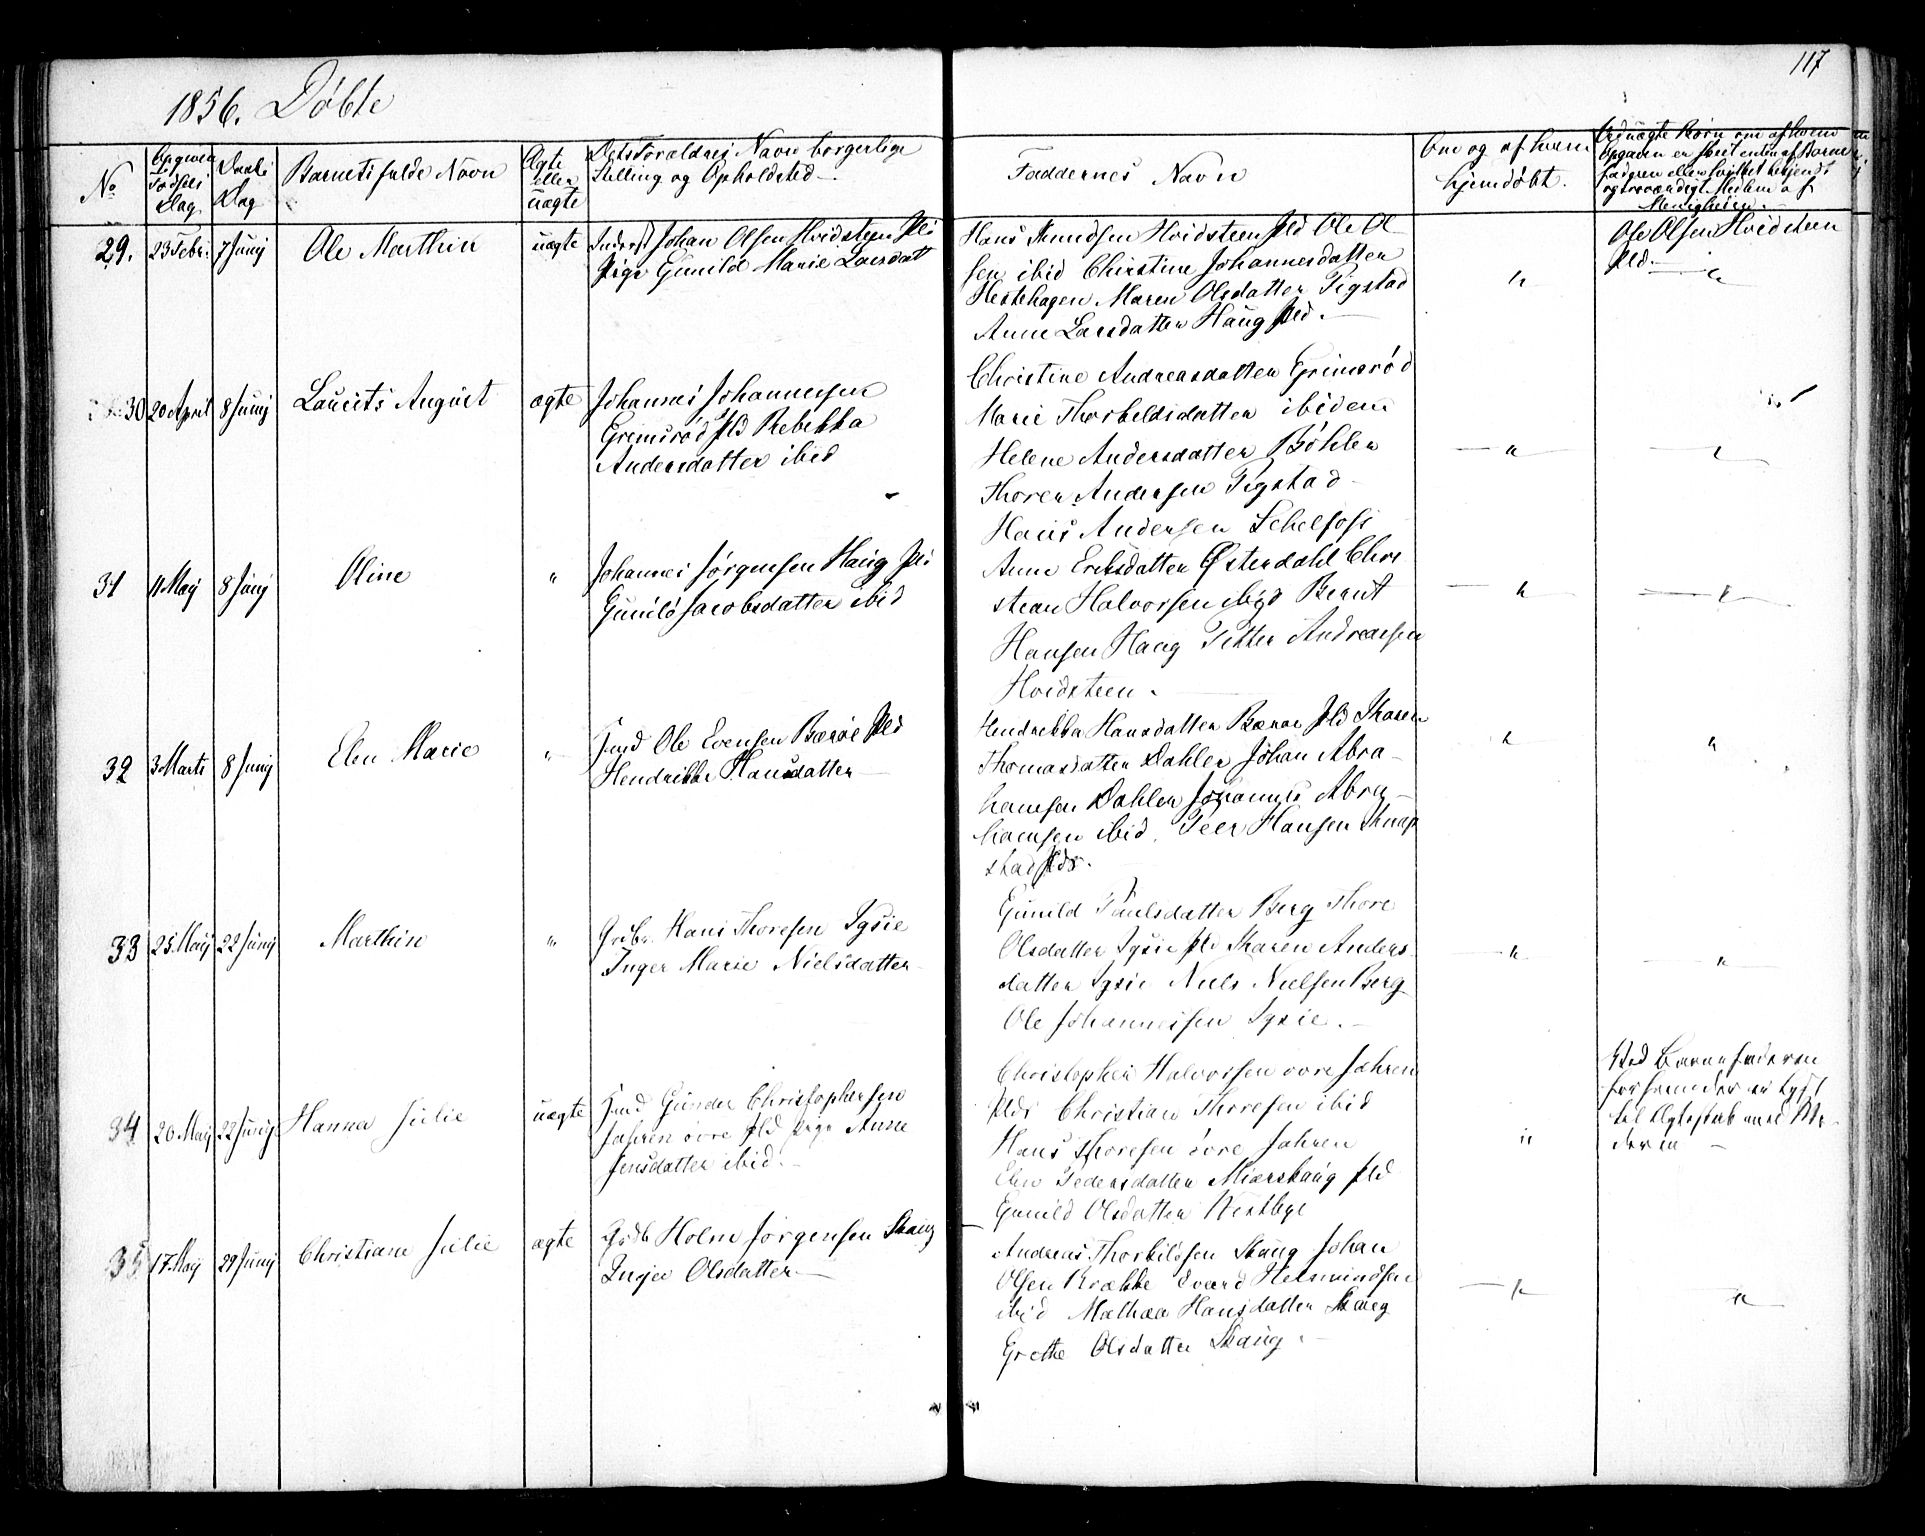 117
1856. Döbte
No
Opgiven Fødsels Dag
Daabs Dag
Barnets fulde Navn
Ægte eller uægte
Dets Forældres Navn borgerlige
Stilling og Opholdsted
Faddernes Navn
Om og af hvem
hjemdöbt.
Ved uægte Börn om af hvem
Opgaven er skeet enten af Barne
faderen eller
Medlem af
Menigheden.
29. 23 Febr. 7 Junij Ole Marthin uægte Inderst Johan Olsen Hvidsteen Pld
Pige Gunild Marie Larsdatt
Hans Amundsen Hvidsteen Pld Ole Ol
sen ibid Christine Johannesdatter
Hestehagen Maren Olsdatter Pigstad
Anne Larsdatter Haug Pld.
"
Ole Olsen Hvidsteen
Pld. "
30 20 April 8 Junij Laurits August ægte Johannes Johannesen
Grimsröd Pld Rebekka
Andersdatter ibid
Christine Andreasdatter Grimsröd
Marie Thorkeldsdatter ibidem
Helene Andersdatter Böhler
Thoren Andersen Pigstad
Hans Andersen Schelfoss
" "
31 11 Maj 8 Junij Oline " Johannes Jörgensen Haug Pld
Gunild Jacobsdatter ibid
Anne Eriksdatter Østerdahl Chri
stian Halvorsen ibid Bernt
Hansen Haug Petter Andreasen
Hvidsteen.
" "
32 3 Marts 8 Junij Elen Marie " Huusd Ole Evensen Baröe Pld
Hendrikke Hansdatter
Hendrikka Hansdatter Baröe Pld Karen
Thomasdatter Dahler Johan Abra-
hamsen Dahler Johannes Abra-
hamsen ibid. Peer Hansen Knap
stad Pld.
" "
33 25 Maij 22 Junij Marthin " Grdbr. Hans Thoresen Sysie
Inger Marie Nielsdatter
Gunild Paulsdatter Berg Thore
Olsdatter Sysie Pld Karen Anders
datter Sysie Niels Nielsen Berg
Ole Johannesen Sysie.
" "
34 20 Maij 22 Junij Hanna Julie uægte Huusd Gunder Christophersen
Jahren övre Pld Pige Anne
Jensdatter ibid.
Christopher Halvorsen övre Jahren
Pld Christian Thoresen ibid
Hans Thoresen övre Jahren
Elen Pedersdatter Miærskaug Pld
Gunild Olsdatter Westbye
"
Ved Barnefaderen
er lyst
til Ægteskab med Mo-
deren
35 17 Maij 29 Junij Christiane Julie ægte Grdb Holm Jörgensen Skaug
Inger Olsdatter
Andreas Thorkildsen Skaug Johan
Olsen Krække Svend Helmundsen
ibid Mathea Hansdatter Skaug
Grethe Olsdatter Skaug.
" "